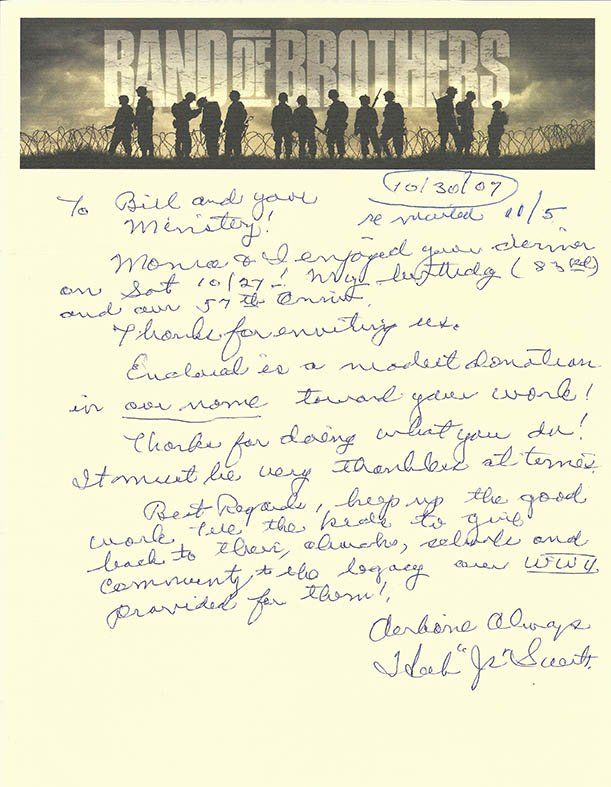 BAND OF BROTHERS
10/30/07
To Bill and your
Ministery!
remailed 11/5.
Monica & I enjoyed your dinner
on Sat 10/27-! My birthday (83rd)
and our 57th Anniv.
Thanks for enviting us.
Enclosed is a modest donation
in our name toward your work!
Thanks for doing what you do!
It must be very thankless at times.
Best Regards, keep up the good
work the kids to give
back to their, churchs, schools and
community, the legacy our WW II
provided for them!
Airborne Always
"Jr"